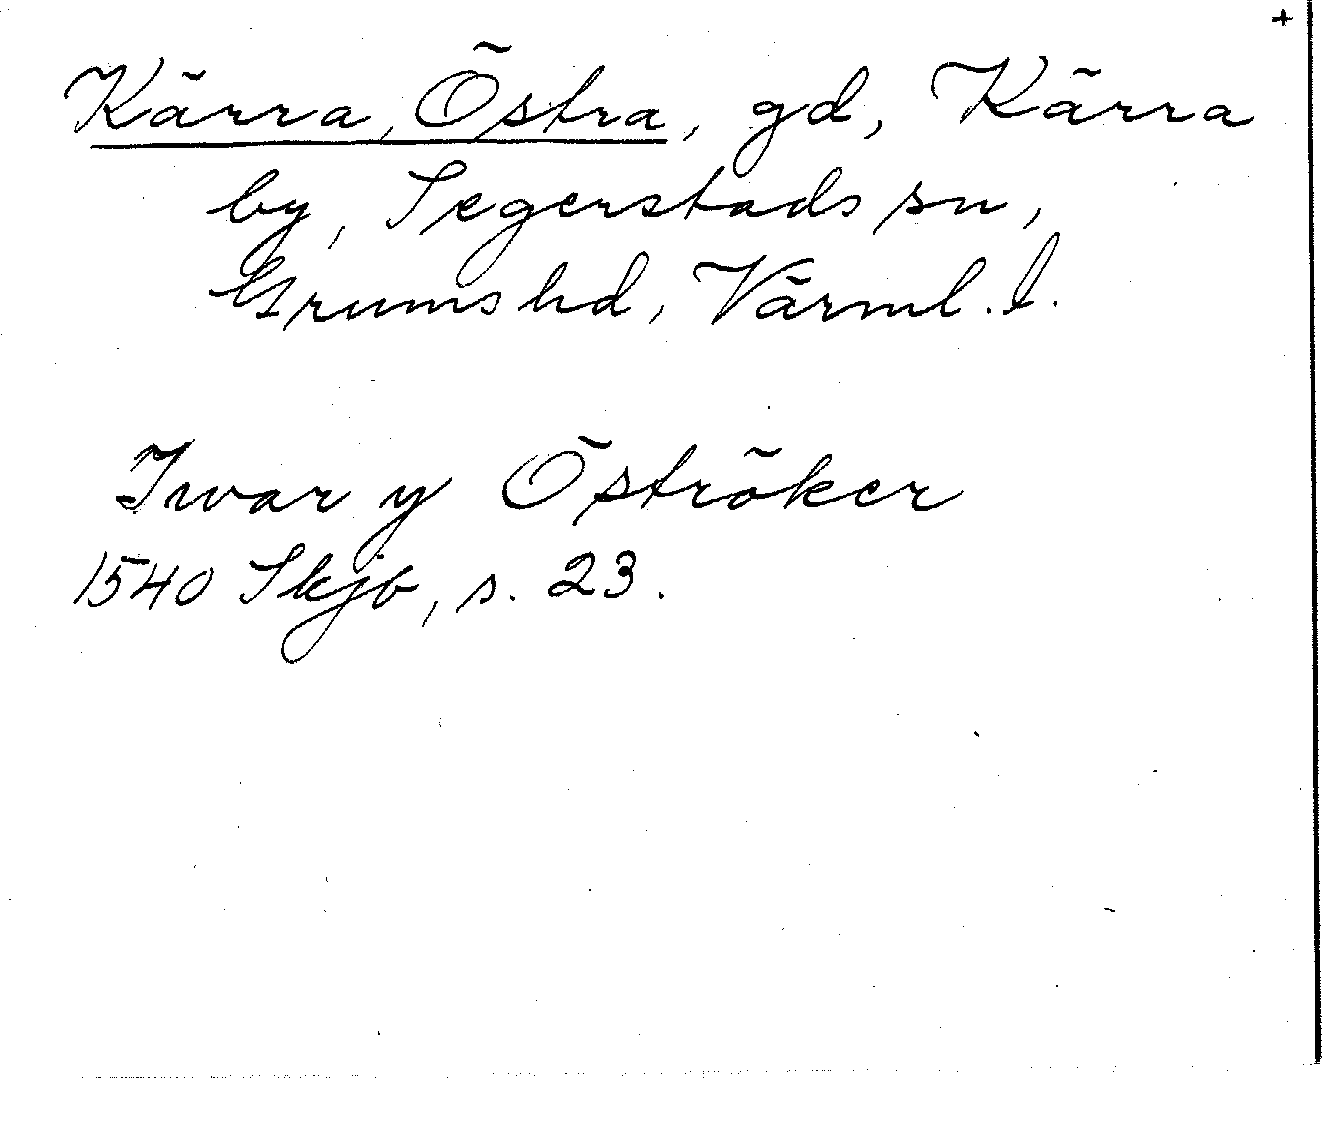 +
Kärra, Östra, gd, Kärra
by, Segerstads sn,
Grums hd, Värml. l.
Iwar y Öströker
1540 Skjb, s. 23.